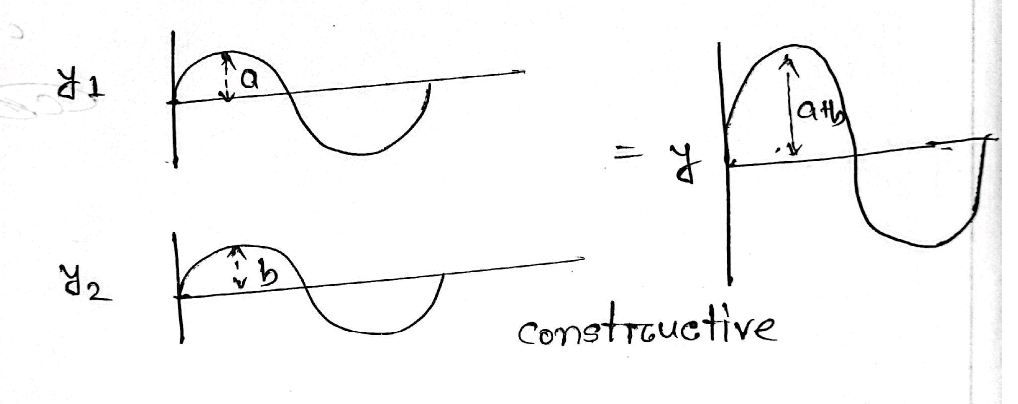 y1
a
= y
a+b
y2
b
constructive